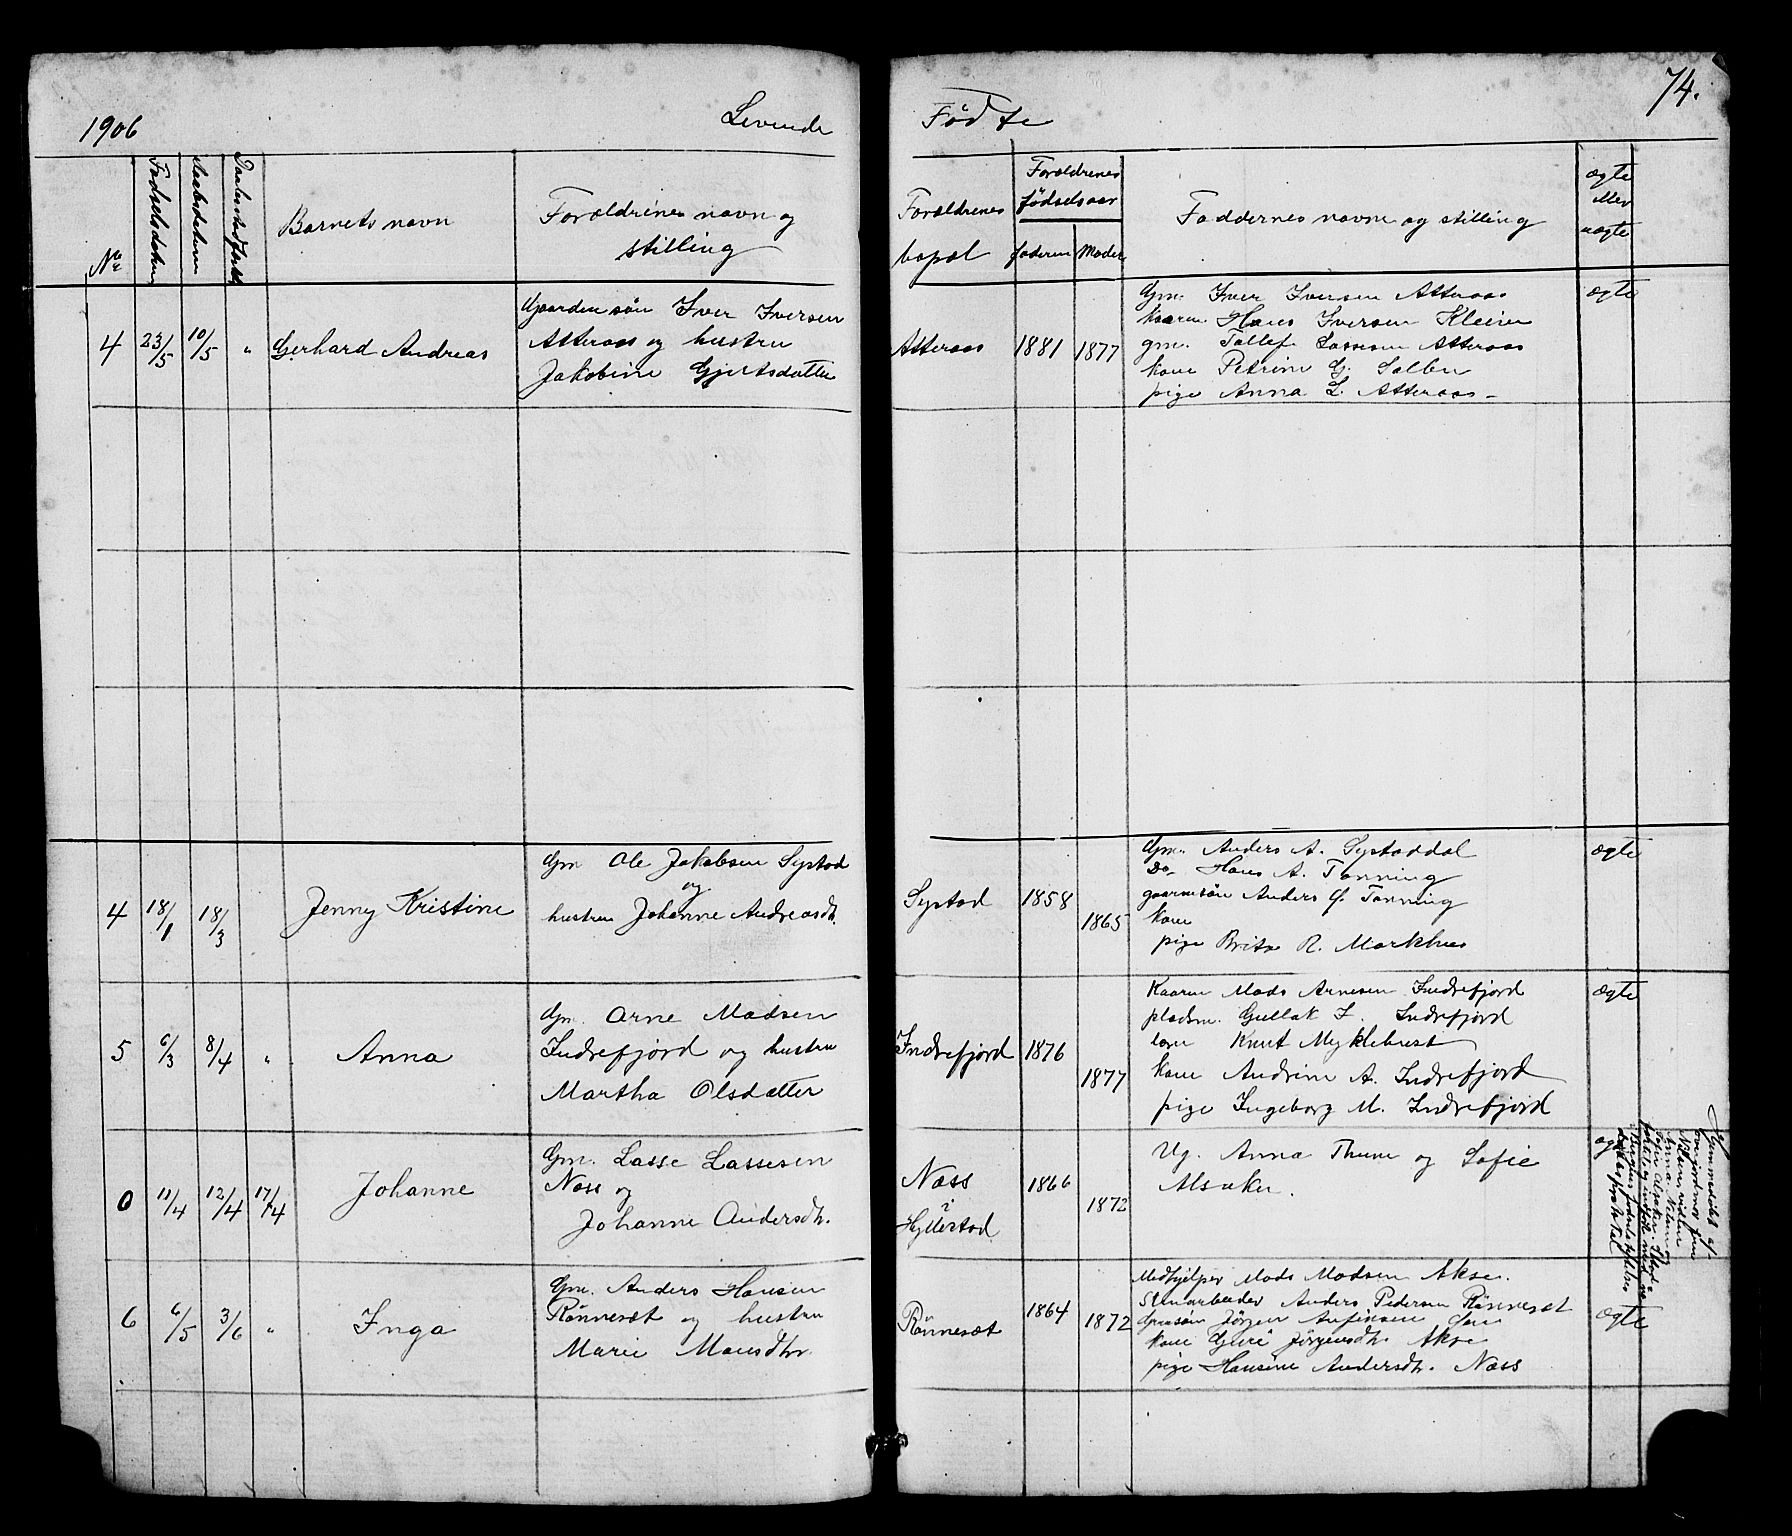 1906
Levende
Fødte
74.
No
Fødselsdatum
Barnets navn
Forældrenes navn og
stilling
Forældrenes
bopæl
Forældrenes
fødselsaar
faderen
Moder
Faddernes navn og stilling
ægte
eller
uægte
4 23/5 10/5 " Gerhard Andreas
Gaardm søn Iver Iversen
Atteraas og hustru
Jakobine Gjertsdatter
Atteraas 1881 1877
Gm. Iver Iversen Atteraas
Kaarm Hans Iversen Kleiven
gm. Tollef Lassesen Atteraas
kone Petrine G. Solbu
pige Anna L. Atteraas
ægte
4 18/1 18/3 Jenny Kristine
Gm Ole Jakobsen Systad
og
hustru Johanne Andreasdtr.
Systad 1858 1865
Gm. Anders A. Systaddal
Do Hans A. Tonning
gaarmsøn Anders G. Tonning
kone
pige Brita R. Markhus
ægte
5 6/3 8/4 " Anna
Gm. Arne Madsen
Indrefjord og hustru
Martha Olsdatter
Indrefjord 1876 1877
Kaarm Mads Arnesen Indrefjord
pladsm. Gullak I. Indrefjord
Knut Myklebust
kone Andrine A. Indrefjord
pige Ingeborg M. Indrefjord
ægte
0 11/4 12/4 17/4 Johanne
Gm. Lasse Lassesen
Næss og
Johanne Andersdtr.
Næss
i
Hyllestad
1866 1872
Ug. Anna Thune og Sofie
Alsaker.
Hjemmedøbt af
6 6/5 3/6 " Inga
Gm. Anders Hansen
Rønneset og hustru
Marie Monsdtr.
Rønneset 1864 1872
Medhjelper Mads Madsen Akse.
Stenarbeider Anders Pedersen Rønneset
Gmsøn Jørgen Anfinsen
kone Guri Jørgensdtr. Akse
pige Hansine Andersdtr. Næss
ægte